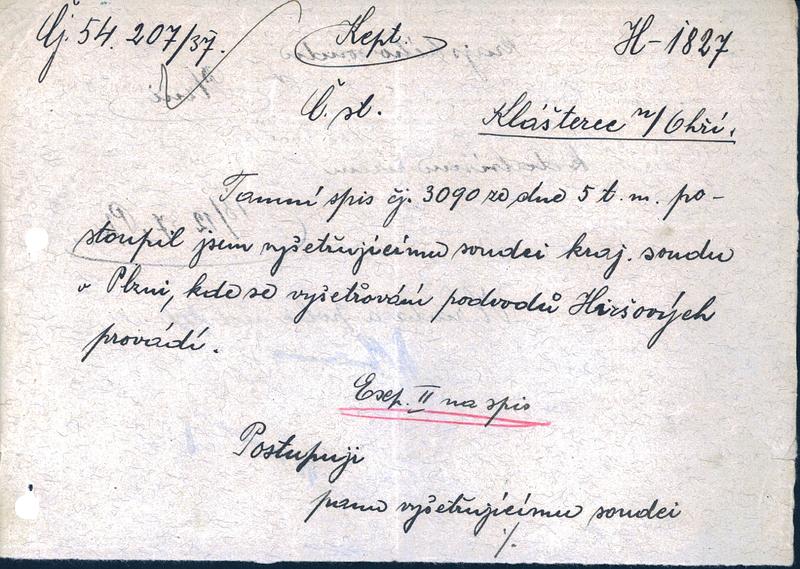 Čj. 54.207/37. Kept. H-1827
Č. st. Klášterec n/Ohří.
Tamní spis čj. 3090 ze dne 5 t. m. po-
stoupil jsem vyšetřujícímu soudci kraj. soudu
v Plzni, kde se vyšetřování podvodů Hiršových
provádí.
Exp. II na spis
Postupuji
panu vyšetřujícímu soudci
./.